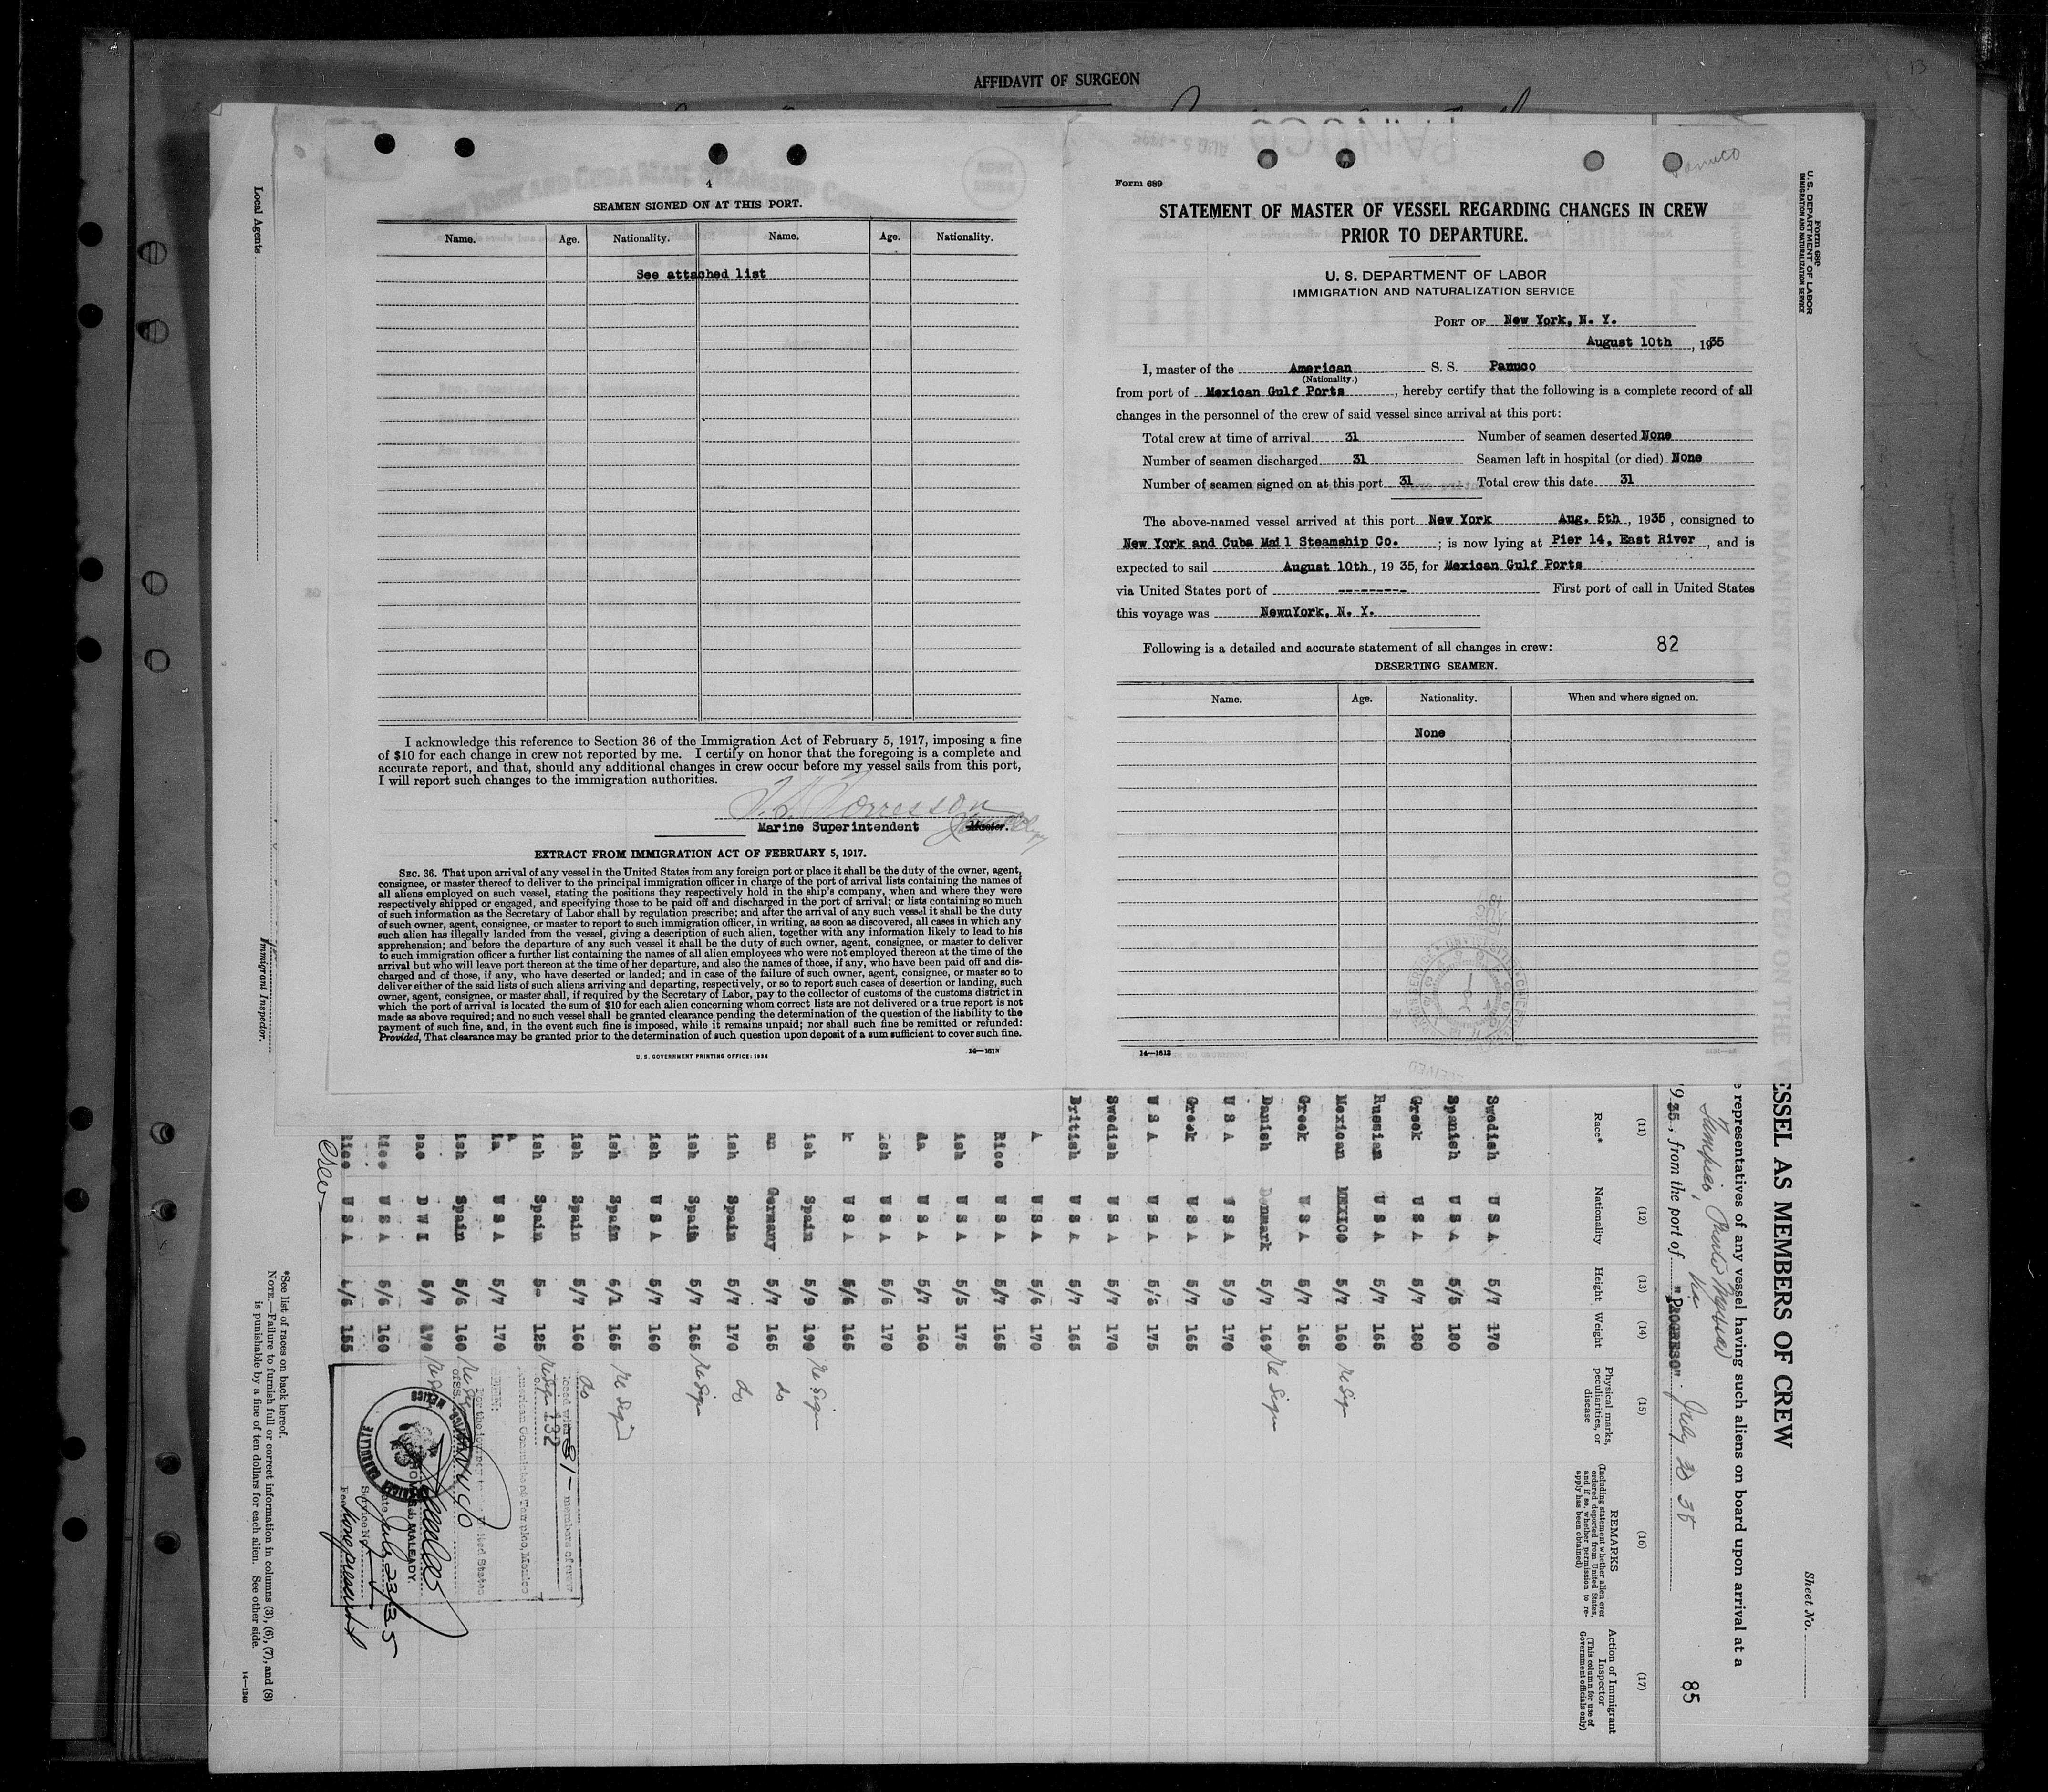 AFFIDAVIT OF SURGEON
13
4
SEAMEN SIGNED ON AT THIS PORT.
Name. Age. Nationality. Name. Age. Nationality.
See attached list
I acknowledge this reference to Section 36 of the Immigration Act of February 5, 1917, imposing a fine
of $10 for each change in crew not reported by me. I certify on honor that the foregoing is a complete and
accurate report, and that, should any additional changes in crew occur before my vessel sails from this port,
I will report such changes to the immigration authorities.
Marine Superintendent Master.
EXTRACT FROM IMMIGRATION ACT OF FEBRUARY 5, 1917.
SEC. 36. That upon arrival of any vessel in the United States from any foreign port or place it shall be the duty of the owner, agent,
consignee, or master thereof to deliver to the principal immigration officer in charge of the port of arrival lists containing the names of
all aliens employed on such vessel, stating the positions they respectively hold in the ship's company, when and where they were
respectively shipped or engaged, and specifying those to be paid off and discharged in the port of arrival; or lists containing so much
of such information as the Secretary of Labor shall by regulation prescribe; and after the arrival of any such vessel it shall be the duty
of such owner, agent, consignee, or master to report to such immigration officer, in writing, as soon as discovered, all cases in which any
such alien has illegally landed from the vessel, giving a description of such alien, together with any information likely to lead to his
apprehension; and before the departure of any such vessel it shall be the duty of such owner, agent, consignee, or master to deliver
to such immigration officer a further list containing the names of all alien employees who were not employed thereon at the time of the
arrival but who will leave port thereon at the time of her departure, and also the names of those, if any, who have been paid off and dis-
charged and of those, if any, who have deserted or landed; and in case of the failure of such owner, agent, consignee, or master so to
deliver either of the said lists of such aliens arriving and departing, respectively, or so to report such cases of desertion or landing, such
owner, agent, consignee, or master shall, if required by the Secretary of Labor, pay to the collector of customs of the customs district in
which the port of arrival is located the sum of $10 for each alien concerning whom correct lists are not delivered or a true report is not
made as above required; and no such vessel shall be granted clearance pending the determination of the question of the liability to the
payment of such fine, and, in the event such fine is imposed, while it remains unpaid; nor shall such fine be remitted or refunded:
Provided, That clearance may be granted prior to the determination of such question upon deposit of a sum sufficient to cover such fine.
U. S. GOVERNMENT PRINTING OFFICE: 1934
Panuco
Form 689
STATEMENT OF MASTER OF VESSEL REGARDING CHANGES IN CREW
PRIOR TO DEPARTURE.
U. S. DEPARTMENT OF LABOR
IMMIGRATION AND NATURALIZATION SERVICE
PORT OF New York, N. Y.
August 10th, 1935
I, master of the American S. S. Panuco
(Nationality.)
from port of Mexican Gulf Ports, hereby certify that the following is a complete record of all
changes in the personnel of the crew of said vessel since arrival at this port:
Total crew at time of arrival 31 Number of seamen deserted None
Number of seamen discharged 31 Seamen left in hospital (or died) None
Number of seamen signed on at this port 31 Total crew this date 31
The above-named vessel arrived at this port New York Aug. 5th, 1935, consigned to
New York and Cuba Mail Steamship Co.; is now lying at Pier 14, East River, and is
expected to sail August 10th, 1935, for Mexican Gulf Ports
via United States port of --------- First port of call in United States
this voyage was NewnYork, N. Y.
Following is a detailed and accurate statement of all changes in crew: 82
DESERTING SEAMEN.
Name. Age. Nationality. When and where signed on.
None
14—1613
Form 689
U. S. DEPARTMENT OF LABOR
IMMIGRATION AND NATURALIZATION SERVICE
Local Agents
Immigrant Inspector.
Sheet No.
ESSEL AS MEMBERS OF CREW
e representatives of any vessel having such aliens on board upon arrival at a
Tampico,
35, from the port of "PROGRESO" July 20 35
85
(11) (12) (13) (14) (15) (16) (17)
Race* Nationality Height Weight Physical marks, peculiarities, or disease
REMARKS
(Including statement whether alien ever ordered deported from United States, and if so, whether permission to re-apply has been obtained)
Action of Immigrant Inspector
(This column for use of Government officials only)
Swedish U S A 5/7 170
Spanish U S A 5/5 180
Greek U S A 5/7 180
Russian U S A 5/7 165
Mexican MEXICO 5/7 160
Greek U S A 5/7 165
Danish Denmark 5/7 169
U S A U S A 5/9 170
Greek U S A 5/7 165
U S A U S A 175
Swedish U S A 5/7 170
British U S A 5/7 165
A U S A 5/6 170
Rico U S A 5/7 165
ish U S A 5/5 175
da U S A 5/7 160
ish U S A 5/6 170
k U S A 5/6 165
ish Spain 5/9 190
an Germany 5/7 165 do
ish Spain 5/7 170 do
ish Spain 5/7 165
ish U S A 5/7 160
ish Spain 6/1 165
ish Spain 5/7 160 do
ish Spain 5- 125
la U S A 5/7 170
ish Spain 5/6 160
D W I 5/7 170
Rico U S A 5/6 160
Rico U S A 5/6 155
31- members of crew
132
American Consulate at Tampico, Mexico
THOMAS J. MALEADY.
July 23/35
Service No.
*See list of races on back hereof.
NOTE.—Failure to furnish full or correct information in columns (3), (6), (7), and (8)
is punishable by a fine of ten dollars for each alien. See other side.
14—1240